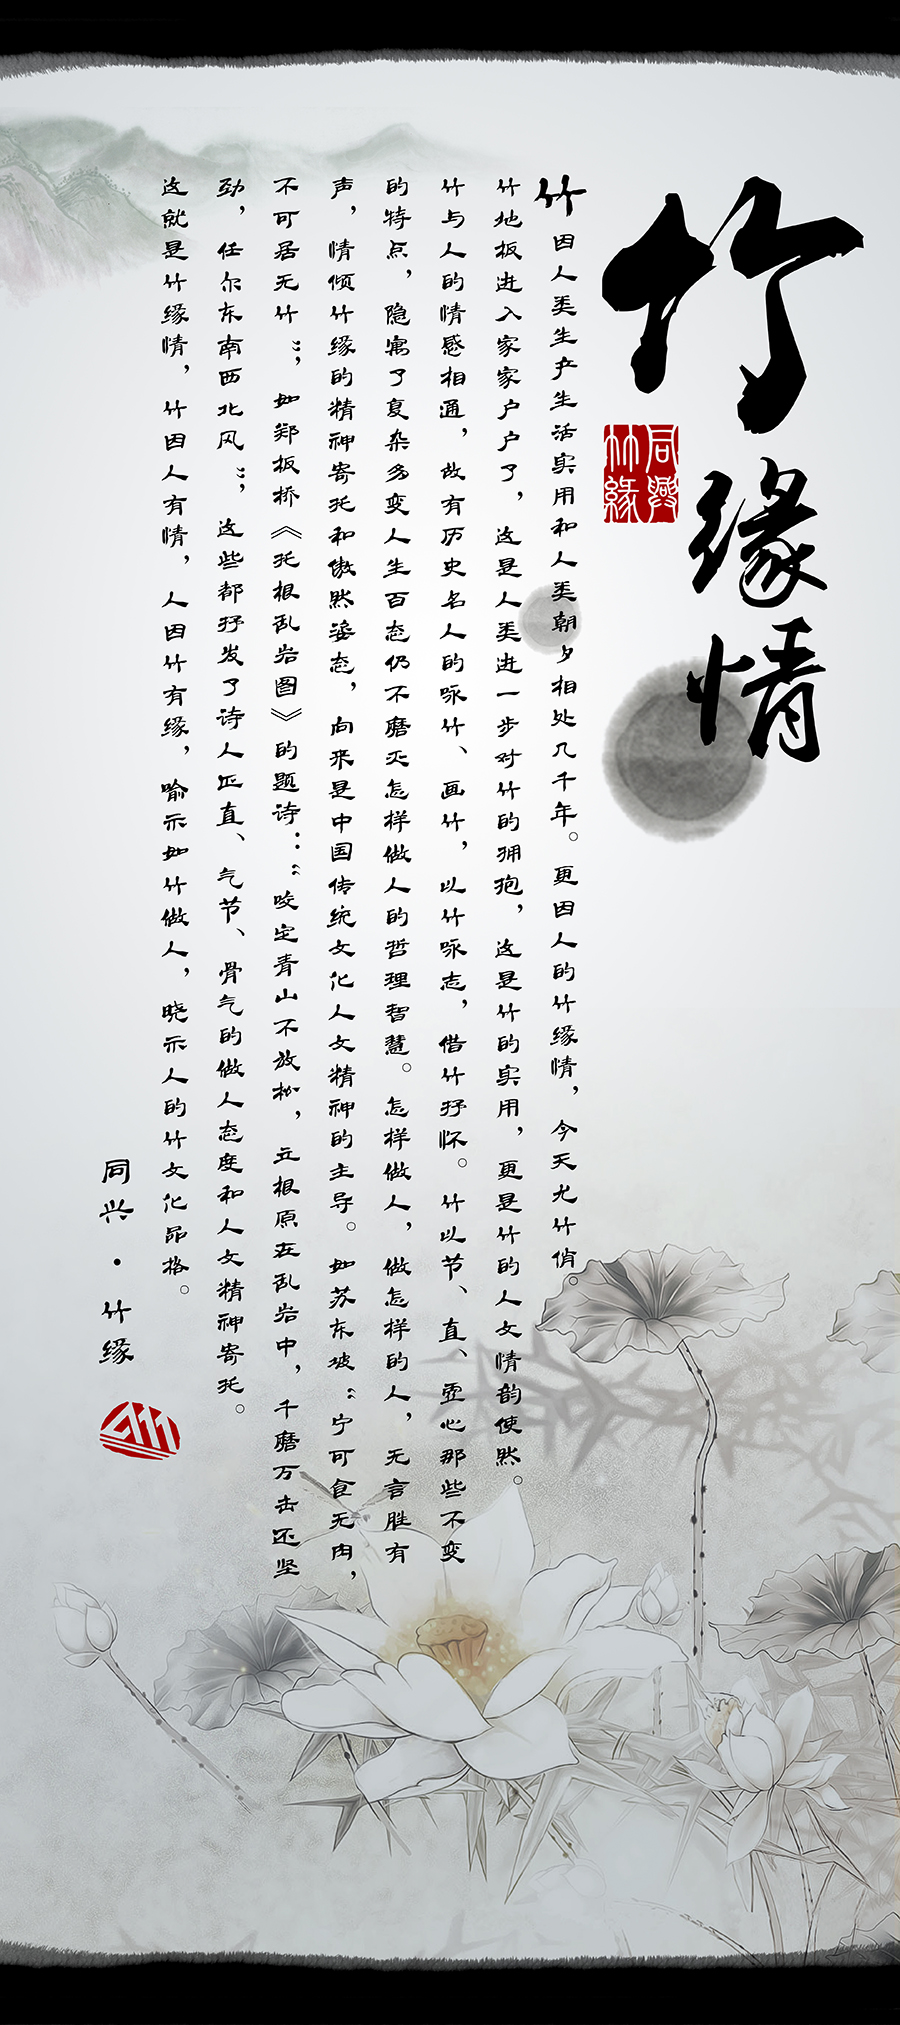 竹缘情
同兴竹緣
竹因人类生产生活实用和人类朝夕相处几千年。更因人的竹缘情，今天尤竹俏。
竹地板进入家家户户了，这是人类进一步对竹的拥抱，这是竹的实用，更是竹的人文情韵使然。
竹与人的情感相通，故有历史名人的咏竹、画竹，以竹咏志，借竹抒怀。竹以节、直、虚心那些不变
的特点，隐寓了复杂多变人生百态仍不磨灭怎样做人的哲理智慧。怎样做人，做怎样的人，无言胜有
声，情倾竹缘的精神寄托和傲然姿态，向来是中国传统文化人文精神的主导。如苏东坡“宁可食无肉，
不可居无竹”，如郑板桥《托根乱岩图》的题诗：“咬定青山不放松，立根原在乱岩中，千磨万击还坚
劲，任尔东南西北风”，这些都抒发了诗人正直、气节、骨气的做人态度和人文精神寄托。
这就是竹缘情，竹因人有情，人因竹有缘，喻示如竹做人，晓示人的竹文化品格。
同兴·竹缘